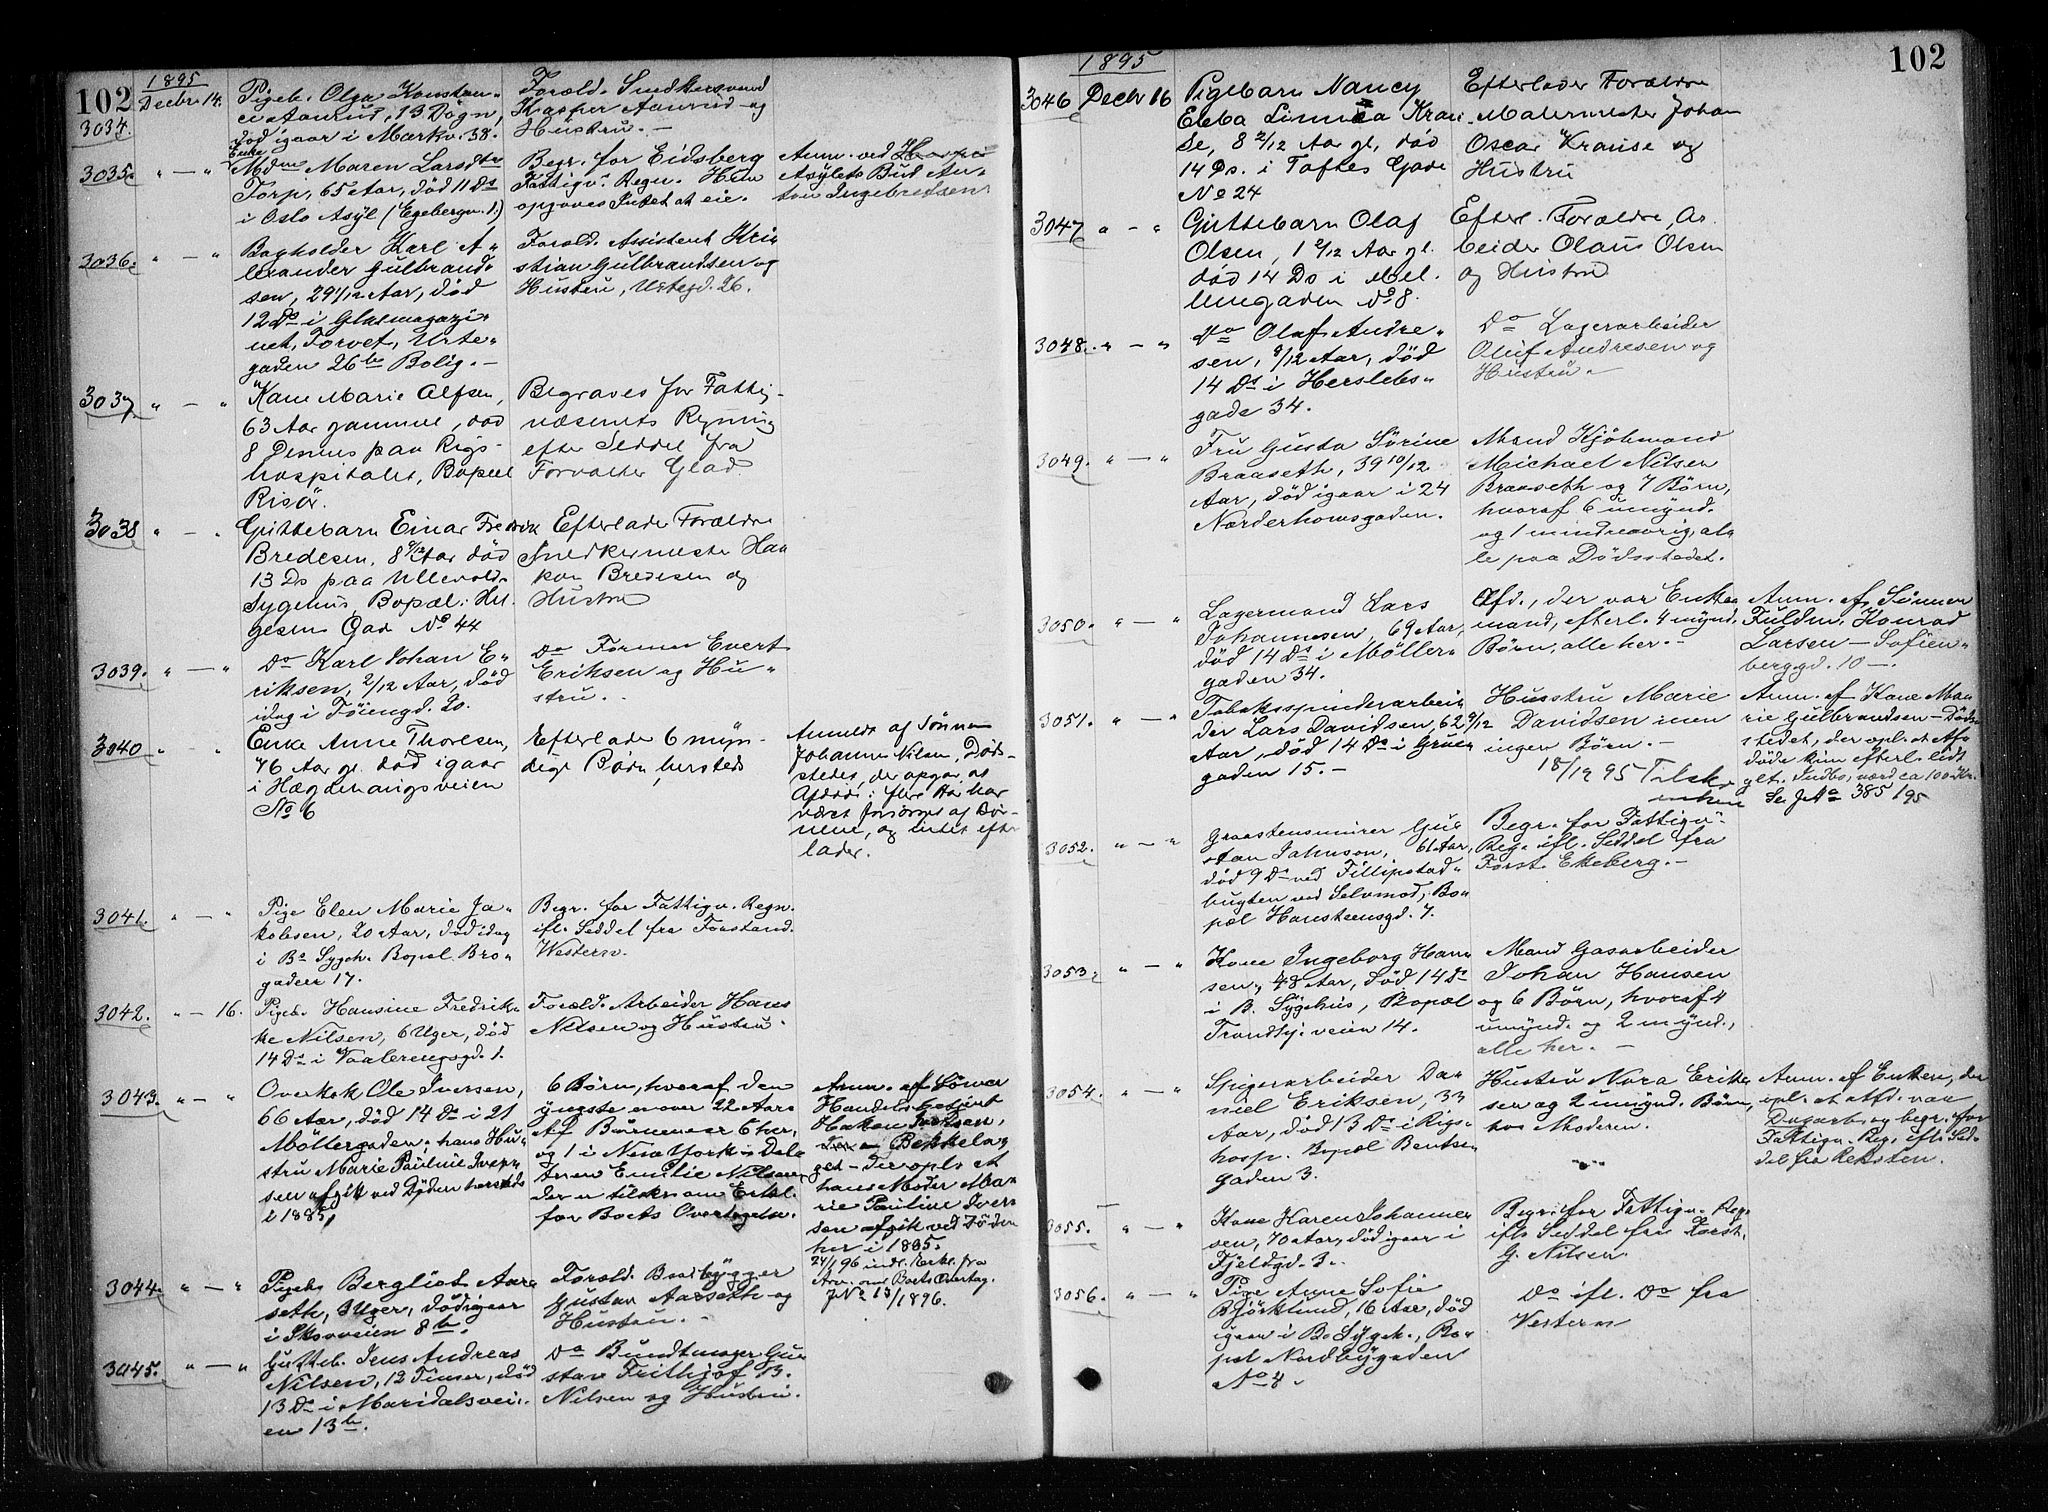 102
1895
Decbr. 14.
3034.
Pigeb. Olga Konstan-
ce Aamrud, 13 Døgn,
død igaar i Markv. 38.
Foræld. Snedkersvend
Kasper Aamrud og
Hustru. —
3035. " — "
Enke
Mdm Maren Larsdtr
Torp, 65 Aar, død 11 Ds
i Oslo Asyl (Egebergv. 1.)
Begr. for Eidsberg
Fattigv. Regn. Hun
opgaves Intet at eie.
Anm. ved
Asylets Bud An-
ton Ingebretsen.
3036. " — "
Bogholder Karl A-
lexander Gulbrand-
sen, 29 1/12 Aar, død
12 Ds i Glasmagazi-
net, Torvet, Urte-
gaden 26 be Bolig. —
Foræld. Assistent Kri-
stian Gulbrandsen og
Hustru, Urtegd. 26.
3037. " — "
Kone Marie Olfsen,
63 Aar gammel, død
8 Dennes paa Rigs-
hospitalet, Bopæl
Risør.
Begraves for Fattig-
væsenets Regning
efter Seddel fra
Forvalter Glad
3038 " — "
Guttebarn Einar Fredrik
Bredesen, 8 9/12 Aar død
13 Ds paa Ullevold
Sygehus, Bopæl: Hel-
gesens Gad No 44
Efterlader Forældre
Snedkermester Haa
kon Bredesen og
Hustru
3039. " — "
Do Karl Johan E-
riksen, 2/12 Aar, død
idag i Tøiengd. 20.
Do Former Evert
Eriksen og Hu-
stru. .
3040 " — "
Enke Anne Thoresen,
76 Aar gl. død igaar
i Hægdehaugsveien
No 6
Efterlader 6 myn-
dige Børn, hersteds
Anmeldt af Sønnen
Johannes Nilsen, Døds-
stedet, der opgav, at
Afdøde i flere Aar har
været forsørget af Bør-
nene, og intet efter
lader.
3041. " — "
Pige Elen Marie Ja-
kobsen, 20 Aar, død idag
i Bs Sygeh. Bopæl Bro-
gaden 17.
Begr. for Fattigv. Regn.
ifl. Seddel fra Forstand.
Western.
3042. " — 16.
Pigeb. Hansine Fredrik-
ke Nilsen, 6 Uger, død
14 Ds i Vaalerengsgd. 1.
Foræld. Arbeider Hans
Nilsen og Hustru.
3043. " — "
Overkok Ole Iversen,
66 Aar, død 14 Ds i 21
Møllergaden; hans Hu-
stru Marie Pauline Iver-
sen afgik ved Døden hersteds
i 1885.
6 Børn, hvoraf den
yngste er over 22 Aar.
Af Børnene er 5 her,
og 1 i New York.
Anne Emilie Nilsen,
der er tilskr. om Erkl.
for Boets Overtagelse.
Anm. af Sønnen
Handelsbetjent
Haakon Iversen,
Bekkelag
get — der opl. at
hans Moder Ma-
rie Pauline Iver-
sen afgik ved Døden
her i 1885.
24/1 96 indk. Erkl. fra
Arv. om Boets Overtag.
JNo 13/1896.
3044. " — "
Pigeb. Bergliot Aar-
seth, 3 Uger, død igaar
i Skovveien 8 b.
Foræld. Baatbygger
Gustav Aarseth og
Hustru. —
3045. " — "
Gutteb. Jens Andreas
Nilsen, 12 Timer, død
13 Ds i Maridalsvei-
en 13 b.
Do Bundtmager Gu-
stav Frithjof B.
Nilsen og Hustru.
1895
102
3046 Decbr 16
Pigebarn Nancy
Ebba Linnea Krau-
se, 8 2/12 Aar gl, død
14 Ds. i Toftes Gade
No 24
Efterlader Forældre
Malermester Johan
Oscar Krause og
Hustru
3047 " — "
Guttebarn Olaf
Olsen, 1 2/12 Aar gl.
død 14 Ds i Møl-
lergaden No 8.
Efterl. Forældre, Ar-
beider Olaus Olsen
og Hustru
3048. " — "
Do Olaf Andre-
sen, 9/12 Aar, død
14 Ds i Herslebs-
gade 34.
Do Lagerarbeider
Oluf Andresen og
Hustru. —
3049. " — "
Fru Gusta Sørine
Braaseth, 39 10/12
Aar, død igaar i 24
Nordrehovsgaden.
Mand Kjøbmand
Michael Nilsen
Braaseth og 7 Børn,
hvoraf 6 umynd.
og 1 mindreaarig, al-
le paa Dødsstedet.
3050. " — "
Lagermand Lars
Johannesen, 69 Aar,
død 14 Ds i Møller-
gaden 34.
Afd., der var Enke-
mand, efterl. 4 mynd.
Børn, alle her. —
Anm. af Sønnen
Fuldm. Konrad
Larsen — Sofien-
berggd. 10 —.
3051. " — "
Tobaksspinderarbei-
der Lars Davidsen, 62 9/12
Aar, død 14 Ds i Grue-
gaden 15. —
Hustru Marie
Davidsen men
ingen Børn. —
18/12 95 Tilsk.
enken
Anm. af Kone Ma-
rie Gulbrandsen — Døds-
stedet, der opl. at Afd
døde kun efterl. lidt
glt. Indbo, værd ca 100 Kr.
Se JNo 385/95
3052. " — "
Graastensmurer Gus-
tav Johnson, 61 Aar,
død 9 Ds ved Fillipstad-
bugten ved Selvmord, Bo-
pæl Hansteensgd. 7.
Begr. for Fattigv.
Reg. ifl. Seddel fra
Forst. Ekeberg. —
3053. " — "
Kone Ingeborg Han-
sen, 48 Aar, død 14 Ds
i B. Sygehus, Bopæl
Trondhj. veien 14.
Mand Gasarbeider
Johan Hansen
og 6 Børn, hvoraf 4
umynd. og 2 mynd.,
alle her. —
3054. " — "
Spigerarbeider Da-
niel Eriksen, 33
Aar, død 13 Ds i Rigs-
hosp. Bopæl Bentse-
gaden 3.
Hustru Nora Erik-
sen og 2 umynd. Børn,
hos Moderen.
Anm. af Enken, der
opl. at Afd. var
Dagarb. og begr. for
Fattigv. Reg. ifl. Sed-
del fra Reksten.
3055. " — "
Kone Karen Johanne-
sen, 70 Aar, død igaar i
Fjeldgd. 3.
Begr. for Fattigv. Reg.
ifl. Seddel fra Forst.
G. Nilsen.
3056. " — "
Pige Anne Sofie
Bjørklund, 16 Aar, død
igaar i Bs Sygeh., Bo-
pæl Nordbygaden
No 4.
Do ifl. Do fra
Western